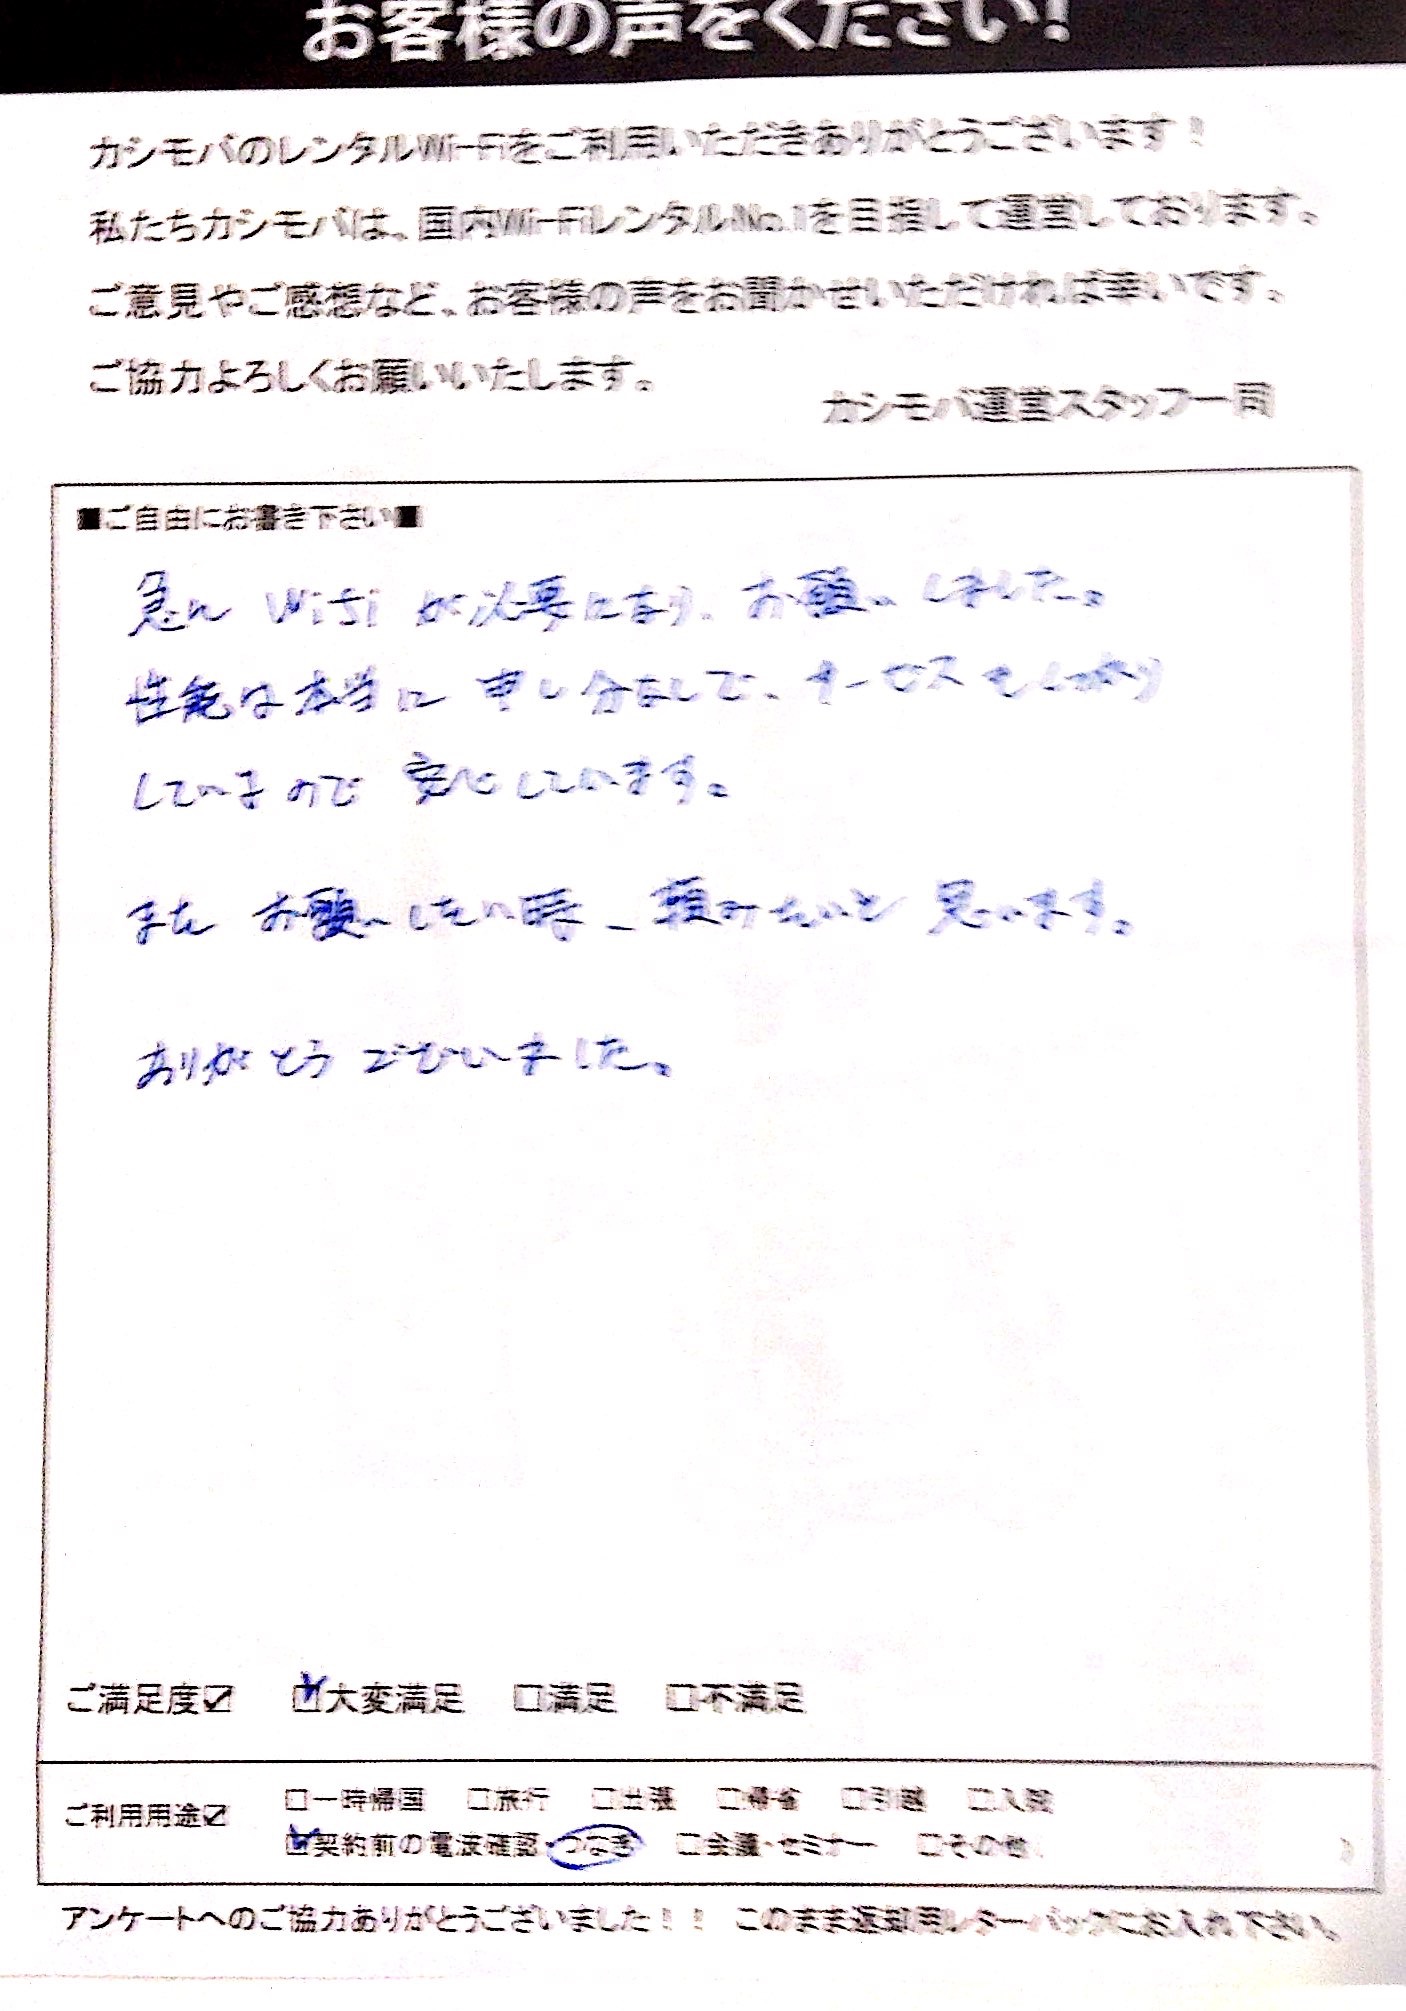 お客様の声をください!
カシモバのレンタルWi-Fiをご利用いただきありがとうございます!
私たちカシモバは、国内Wi-FiレンタルNo.1を目指して運営しております。
ご意見やご感想など、お客様の声をお聞かせいただければ幸いです。
ご協力よろしくお願いいたします。
カシモバ運営スタッフ一同
■ご自由にお書き下さい■
急に Wifi が必要になり、お願いしました。
性能は本当に申し分なしで、サービスもしっかり
しているので 安心しています。
また お願いしたい時、頼みたいと思います。
ありがとうございました。
ご満足度☑ ☑大変満足 □満足 □不満足
□一時帰国 □旅行 □出張 □帰省 □引越 □入院
ご利用用途☑
☑契約前の電波確認・つなぎ □会議・セミナー □その他( )
アンケートへのご協力ありがとうございました!! このまま返却用レターパックにお入れ下さい。